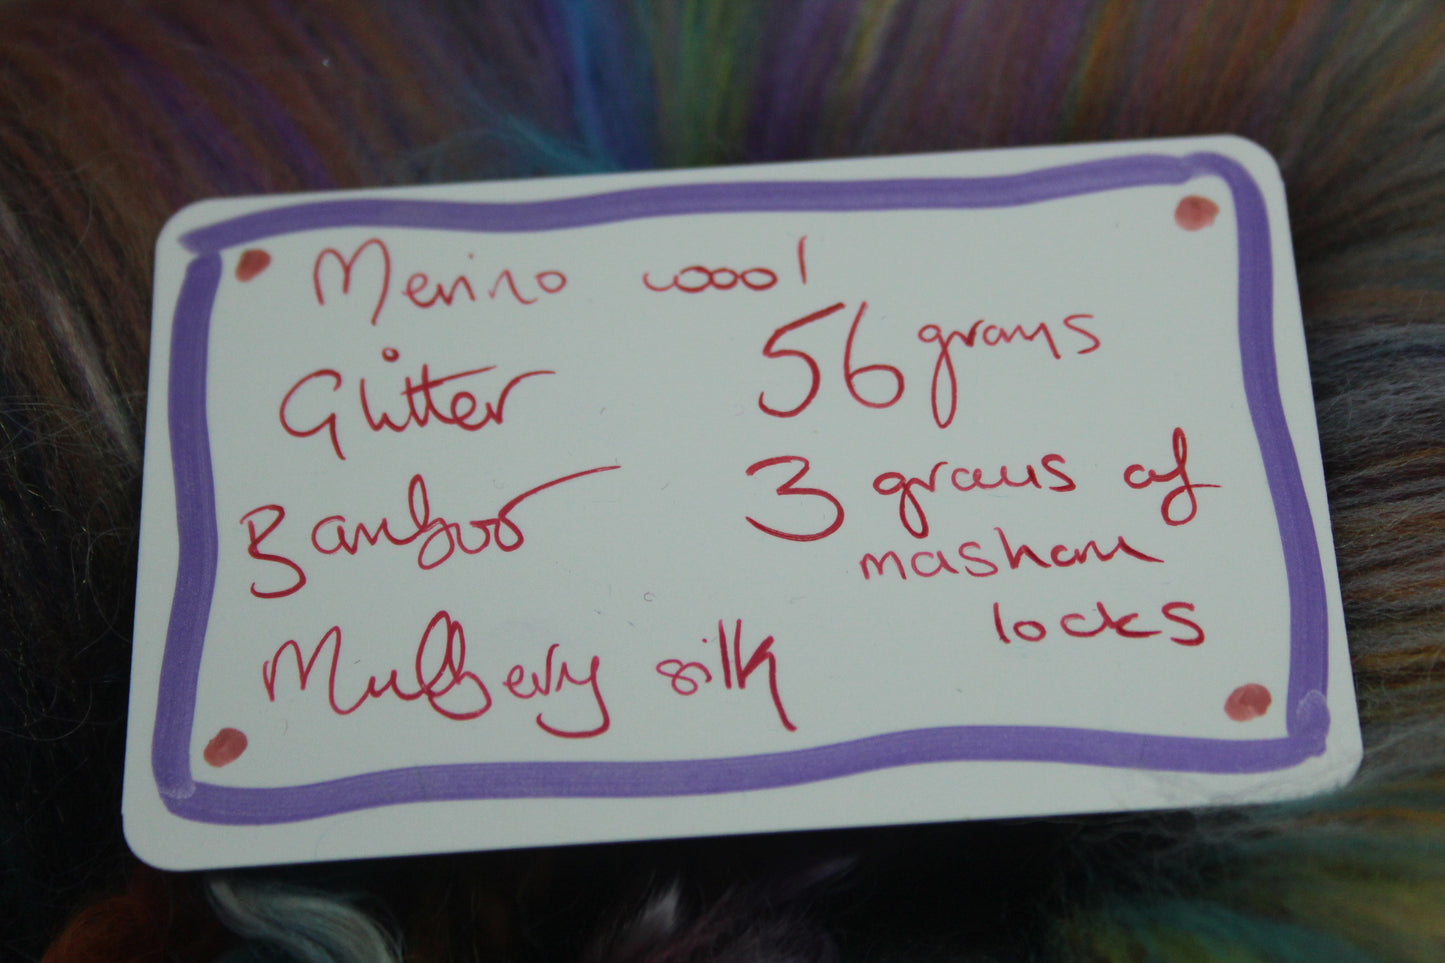 Merino wool
Glitter
Bamboo
Mulberry silk
56 grams
3 grams of
masham
locks